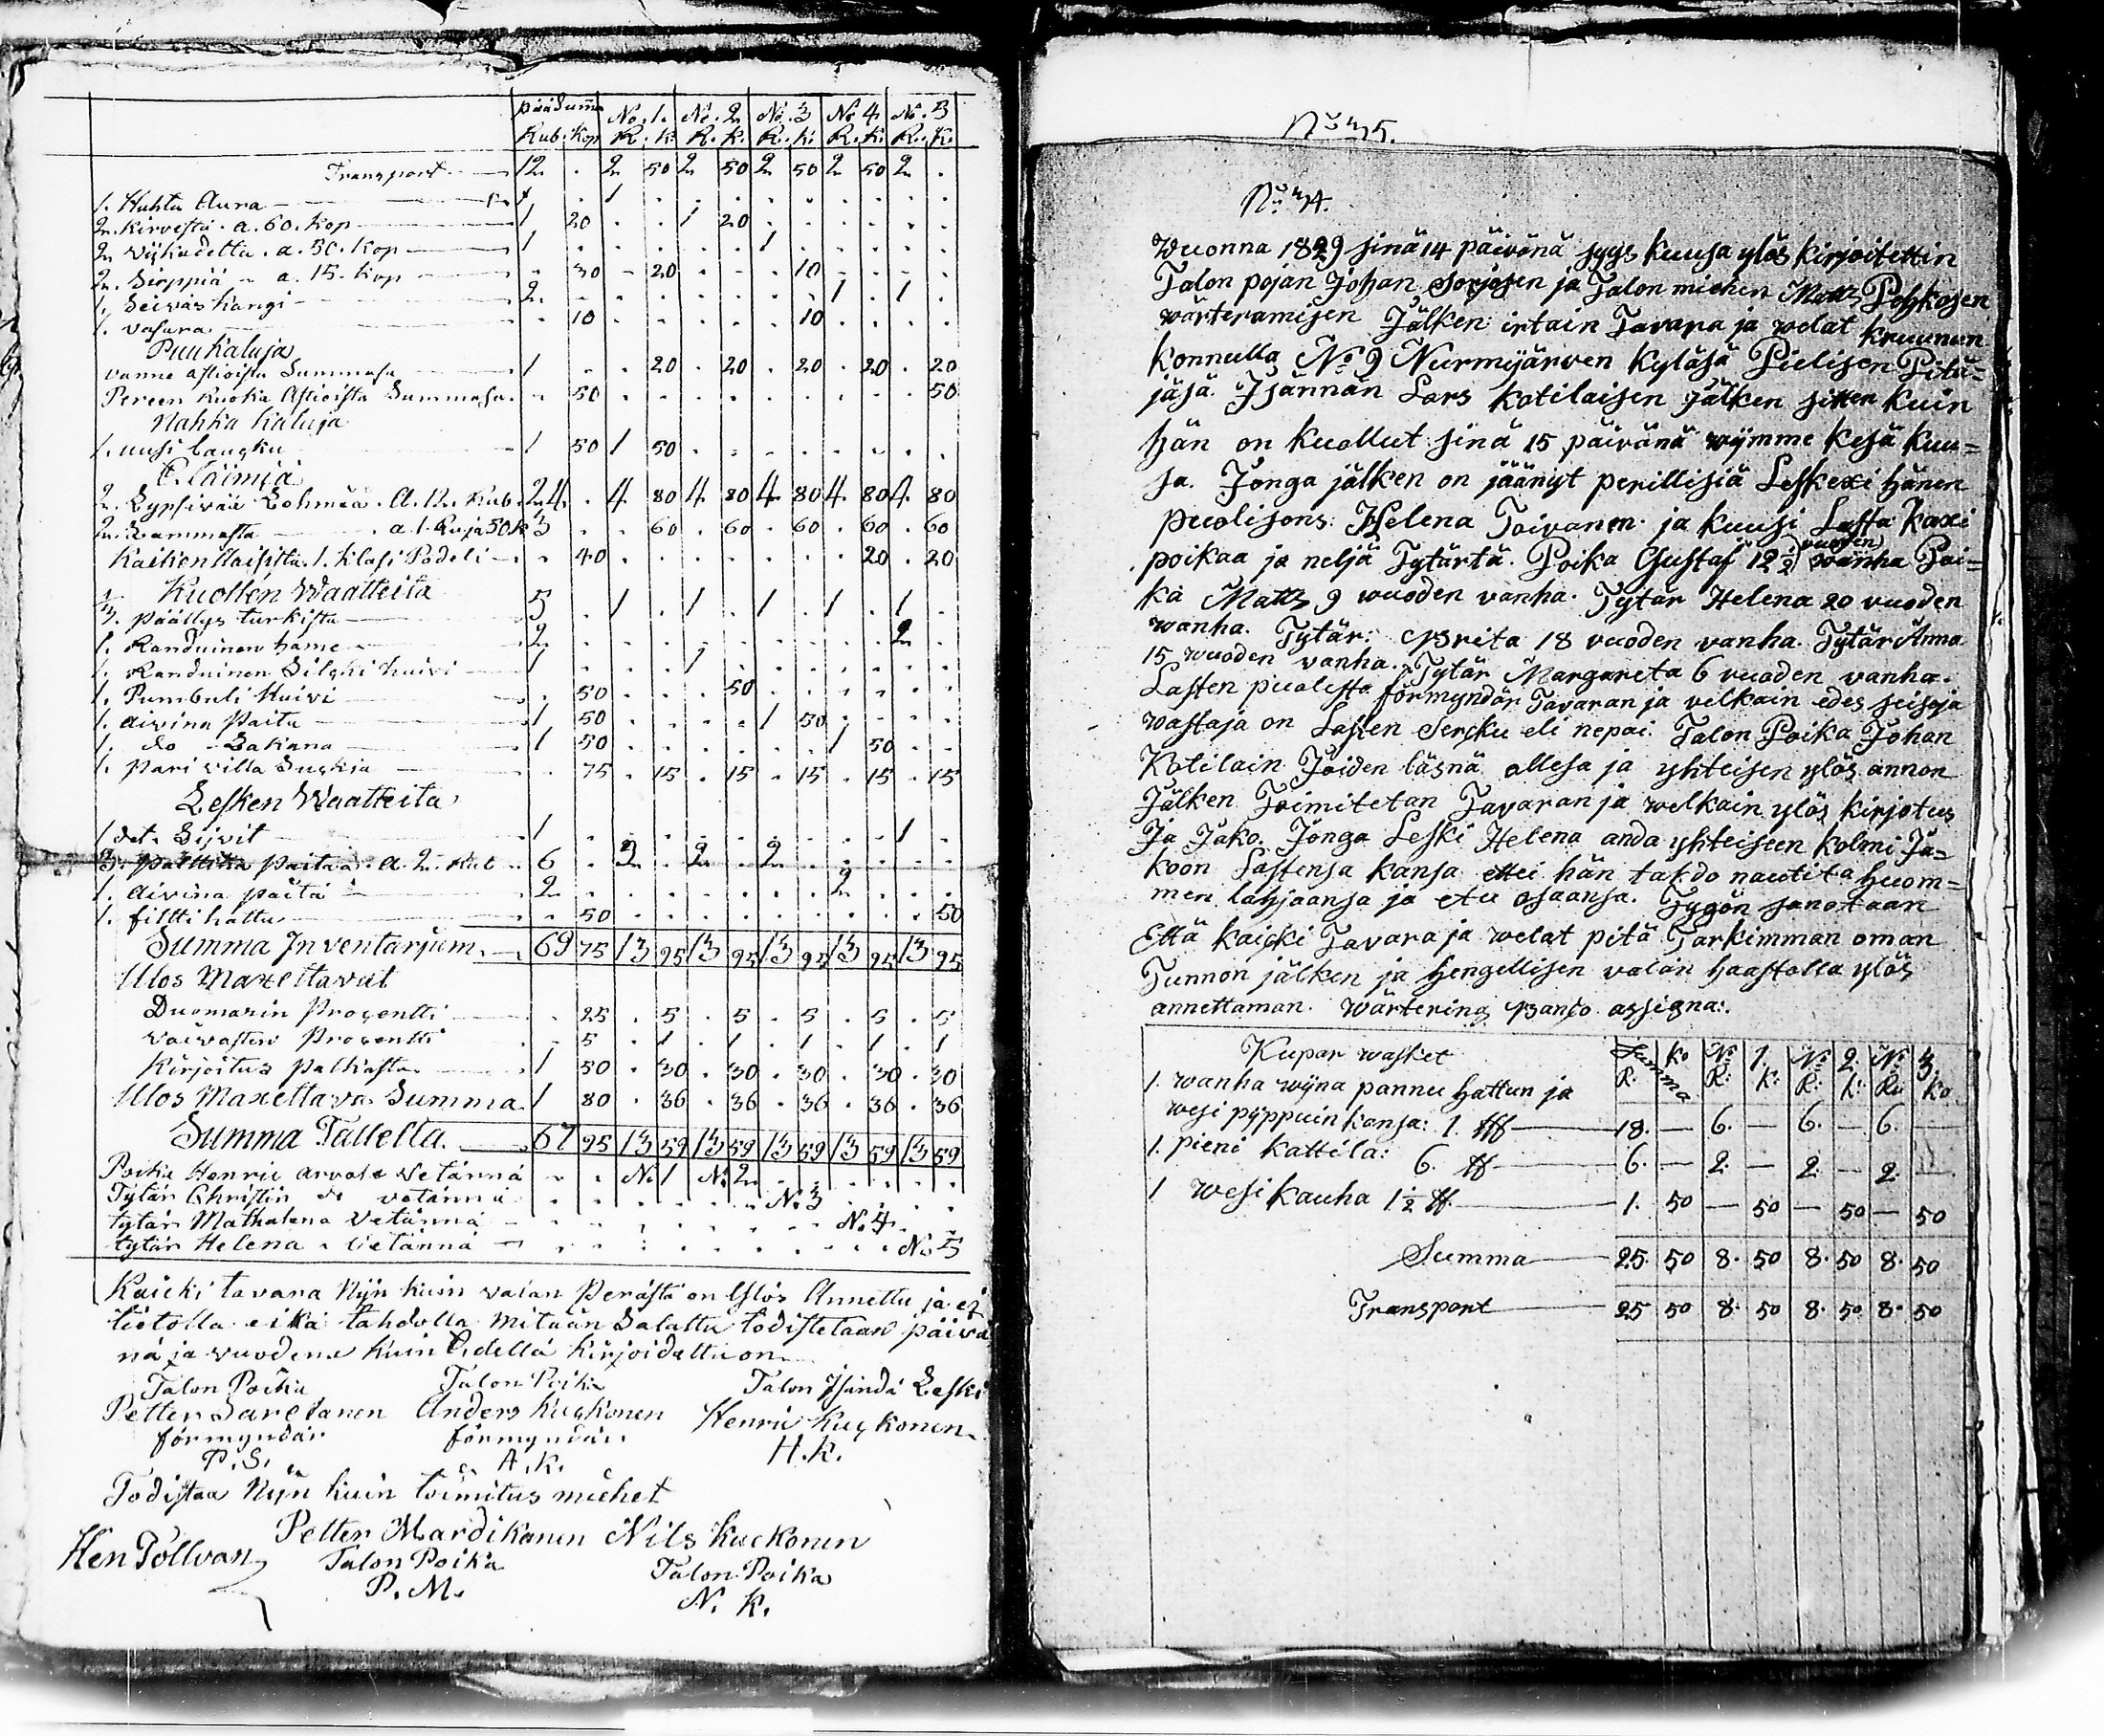 pääSumma No. 1. No. 2 No. 3 No 4 No. 5
Rub. Kop R. k. R. k. R. k. R. k. R. k.
Transport 12 . 2 50 2 50 2 50 2 50 2 .
1. Huhta Aura 1 . 1 . . . . . . . . .
2. kirvestä. a. 60. kop 1 20 . . 1 20 . . . . . .
2. wijkadetta. a. 50. kop 1 . . . . . 1 . . . . .
2. Sirppiä - a. 15. kop - 30 - 20 . . . 10 . . . .
1. Seiväs kangi 2 . . . . . . . 1 . 1 .
1. vasara . 10 . . . . . 10 . . . .
Puukaluja
vanne astioista Summasa 1 . . 20 . 20 . 20 . 20 . 20
Pereen Ruoka Astioista Summasa . 50 . . . . . . . . . 50
Nahka kaluja
1. uusi laugku 1 50 1 50 . . . . . . . .
Eläimiä
2. Lypsivää Lehmää. A. 12. Rub. 24 . 4 80 4 80 4 80 4 80 4 80
2. Lammasta a. 1. Ru ja 50 k 3 . . 60 . 60 . 60 . 60 . 60
kaikenllaisitta. 1. klasi Podeli . 40 . . . . . . . 20 . 20
Kuollen Waatteita
päällys turkista 5 . 1 . 1 . 1 . 1 . 1 .
1. Randuinen hame 2 . . . . . . . . . 2 .
1. Randuinen Silghi huivi 1 . . . 1 . . . . . . .
1. Pumbuli Huivi . 50 . . . 50 . . . . . .
1. aivina paita 1 50 . . . . 1 50 . . . .
1. do - Lakana 1 50 . . . . . . 1 50 . .
1. pari villa Sugkia . 75 . 15 . 15 . 15 . 15 . 15
Lesken Waatteita
1 det. Sijvit 1 . . . . . . . . . 1 .
3. palttina paitaa. a. 2. Rub 6 . 2 . 2 . 2 . . . . .
1. aivina paita 2 . . . . . . . 2 . . .
1. filtti hattu . 50 . . . . . . . . . 50
Summa Inventarium 69 75 13 95 13 95 13 95 13 95 13 95
Ulos Maxettavat
Duomarin Prosentti . 25 . 5 . 5 . 5 . 5 . 5
vaivasten Prosentti . 5 . 1 . 1 . 1 . 1 . 1
kirjoitus palkasta 1 50 . 30 . 30 . 30 . 30 . 30
Ulos Maxettava Summa 1 80 . 36 . 36 . 36 . 36 . 36
Summa Tallella 67 95 13 59 13 59 13 59 13 59 13 59
Poika Henric arvole vetännä No. 1 No. 2
Tytär Christin do vetännä No. 3
tytär Mathalena Vetännä No. 4
tytär Helena vetännä No. 5
Kaicki tavara Nijn kuin valan Perästä on Ylös Annettu ja ej
tiotolla eikä tahdolla mitään Salattu todistetaan päivä
nä ja vuodena kuin Edellä kirjoidettu on
Talon Poika Talon Poika Talon Jsändä Leski
Petter Saretanen Anders kuckonen Henric kuckonen
förmyndär förmyndär H. k.
P. S. A. k.
Todistaa Nijn kuin toimitus miehet
Petter Mardikanen Nils kuckonen
Hen Pollvan Talon Poika Talon Poika
P. M. N. k.
No 45.
No 44.
Wuonna 1829 sinä 14 päivänä sygs kuusa ylös kirjoitettin
Talon pojan Johan Sorjosen ja Talon miehen Matts Pohkosen
värteramisen Jälken irtain Tavara ja welat kruunun
konnulla No 9 Nurmijärven kyläsä Pielisen Pitä=
jäsä. Jsännän Lars kotilaisen Jälken sitten kuin
hän on kuollut sinä 15 päivänä wijmme kesä kuu=
sa. Jonga jälken on jäänyt perillisiä Leskexi hänen
puolisons: Helena Toivanen ja kuusi Lasta kaxi
vuoden
poikaa ja neljä Tytärtä. Poika Gustaf 12 ½ wanha Poi=
ka Matts 9 vuoden vanha. Tytär Helena 20 vuoden
wanha. Tytär: Brita 18 vuoden vanha. Tytär Anna
15 wuoden vanha. Tytär Margareta 6 vuoden vanha.
Lasten puolesta förmyndär Tavaran ja velkain edes seisoja
wastaja on Lasten Sercku eli nepai Talon Poika Johan
Kotilain Joiden läsnä ollesa ja yhteisen ylös annon
Jälken Toimitetan Tavaran ja welkain ylös kirjotus
Ja Jako. Jonga Leski Helena anda yhteiseen kolmi Ja=
koon Lastensa kansa ettei hän tahdo nautita huom=
men lahjaansa ja etu osaansa. Tygön sanotaan
Että kaicki Tavara ja welat pitä Tarkimman oman
Tunnon jälken ja hengellisen valan haastolla ylös
annettaman. Wärtering Banco assigna:.
Kupar wasket Summa ko No 1. No 2. No 3.
R: R: k: R: k: Ru ko
1. wanha wijna pannu hattun ja
wesi pyppuin kansa: 1. 18. — 6. — 6. — 6. —
1. pieni kattila: 6. 6. — 2. — 2. — 2 —
1 wesi kauha 1 ½ 1. 50 — 50 — 50 — 50
Summa 25. 50 8. 50 8. 50 8. 50
Transport 25 50 8. 50 8. 50 8. 50